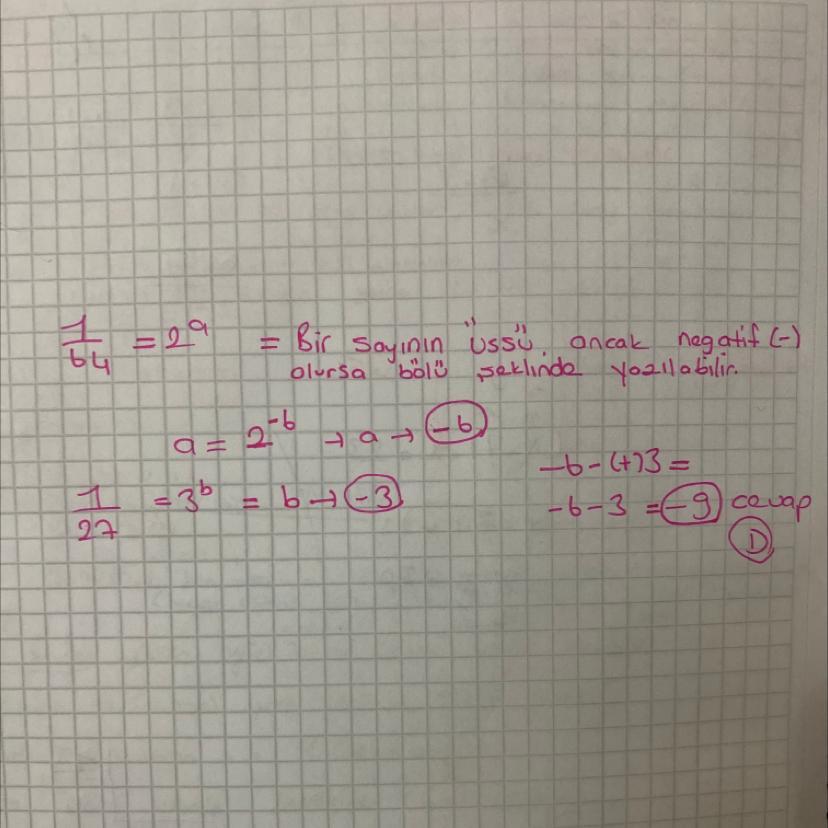 1/64 = 2^a = Bir sayının üssü ancak negatif (-)
olursa bölü şeklinde yazılabilir.
a = 2^-6 → a → -6
1/27 = 3^b = b → -3
-6-(+)3 =
-6-3 = -9 cevap
D